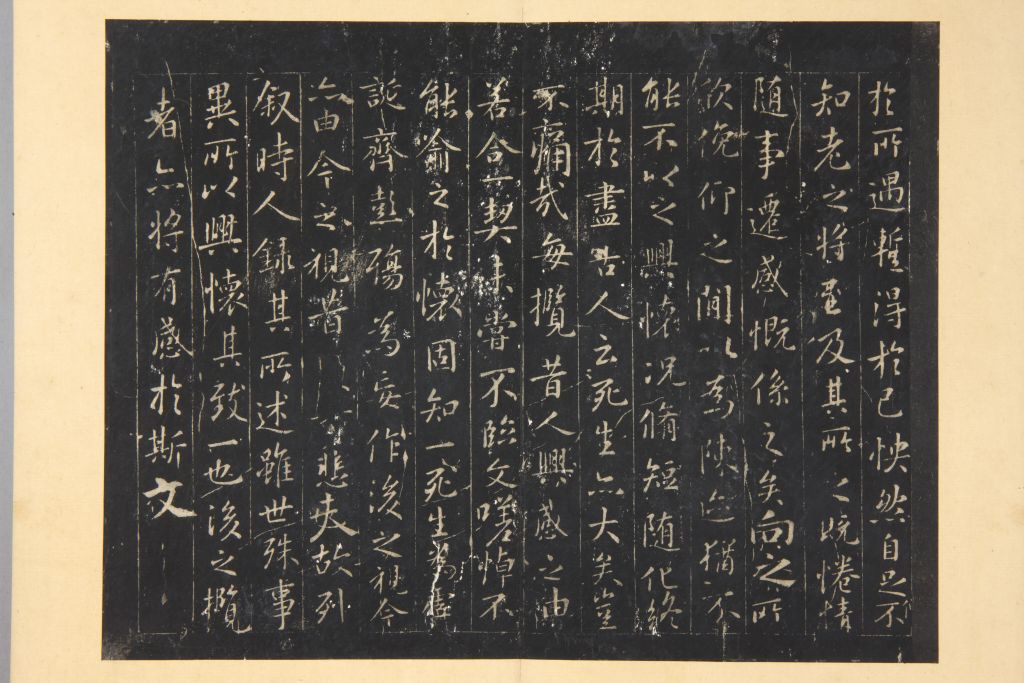 於所遇暫得於己怏然自足不
知老之將至及其所之既惓情
随事遷感慨係之矣向之所
欣俛仰之閒以爲陳迹猶不
能不以之興懷况脩短随化終
期於盡古人云死生亦大矣豈
不痛哉每攬昔人興感之由
若合一契未嘗不臨文嗟悼不
能喻之於懷固知一死生爲虛
誕齊彭殤爲妄作後之視今
亦由今之視昔 悲夫故列
叙時人録其所述雖世殊事
異所以興懷其致一也後之攬
者亦將有感於斯文